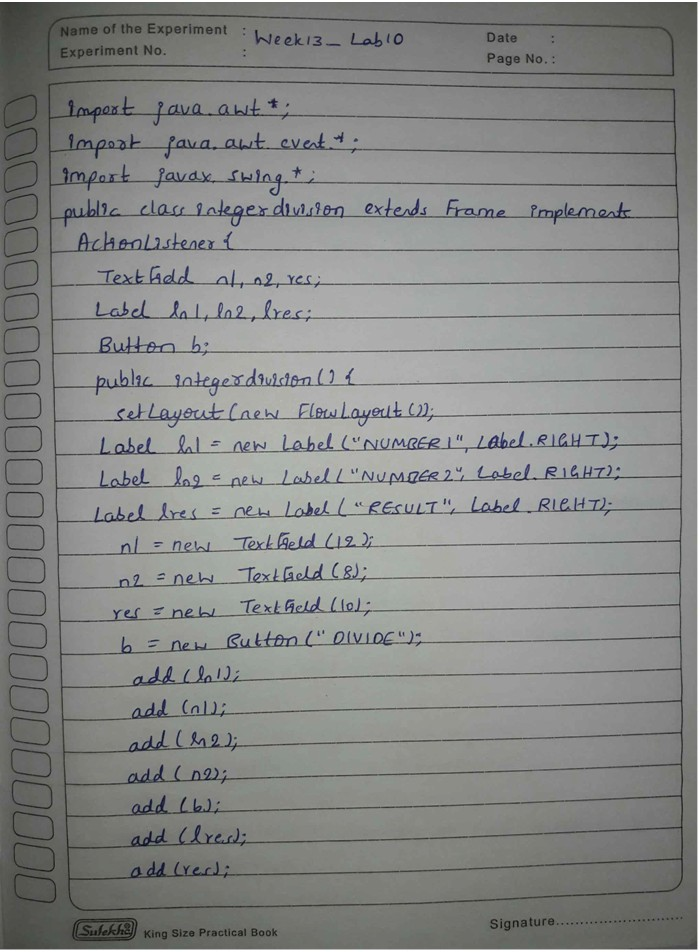 Name of the Experiment : Week13_ Lab10
Date :
Experiment No. :
Page No. :
import java.awt.*;
import java.awt.event.*;
import javax.swing.*;
public class integerdivision extends Frame implements
ActionListener {
TextField n1, n2, res;
Label ln1, ln2, lres;
Button b;
public integerdivision() {
setLayout(new FlowLayout());
Label ln1 = new Label("NUMBER1", Label.RIGHT);
Label ln2 = new Label("NUMBER2", Label.RIGHT);
Label lres = new Label("RESULT", Label.RIGHT);
n1 = new TextField(12);
n2 = new TextField(8);
res = new TextField(10);
b = new Button("DIVIDE");
add(ln1);
add(n1);
add(ln2);
add(n2);
add(b);
add(lres);
add(res);
Sulekha King Size Practical Book
Signature....................